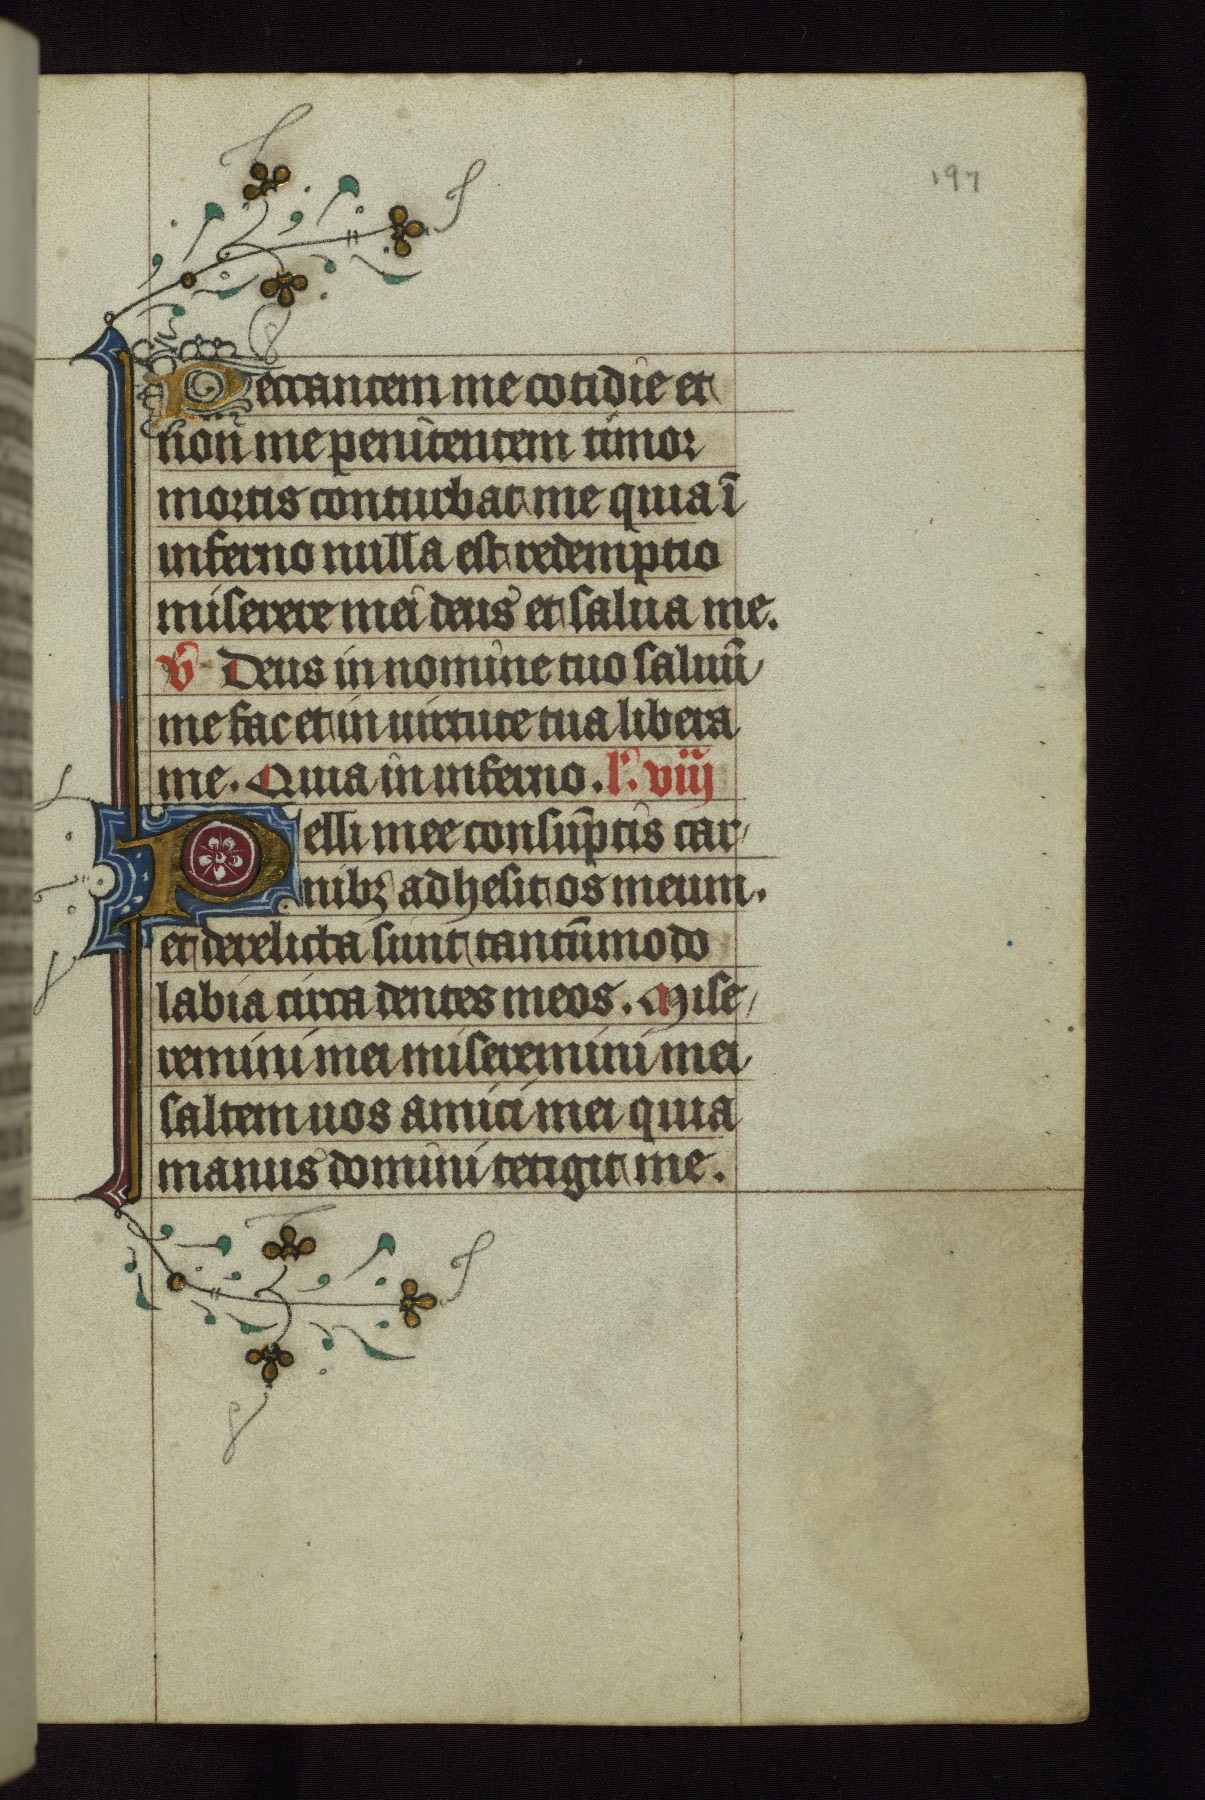 197
Peccantem me cotidie et
non me penitentem timor
mortis conturbat me quia ī
inferno nulla est redemptio
miserere mei deus et salua me.
v̄ Deus in nomine tuo saluū
me fac et in uirtute tua libera
me. Quia in inferno. l'. viij
Pelli mee consūptis car
nibꝫ adhesit os meum.
et derelicta sunt tantūmodo
labia circa dentes meos. Mise
remini mei miseremini mei
saltem uos amici mei quia
manus domini tetigit me.